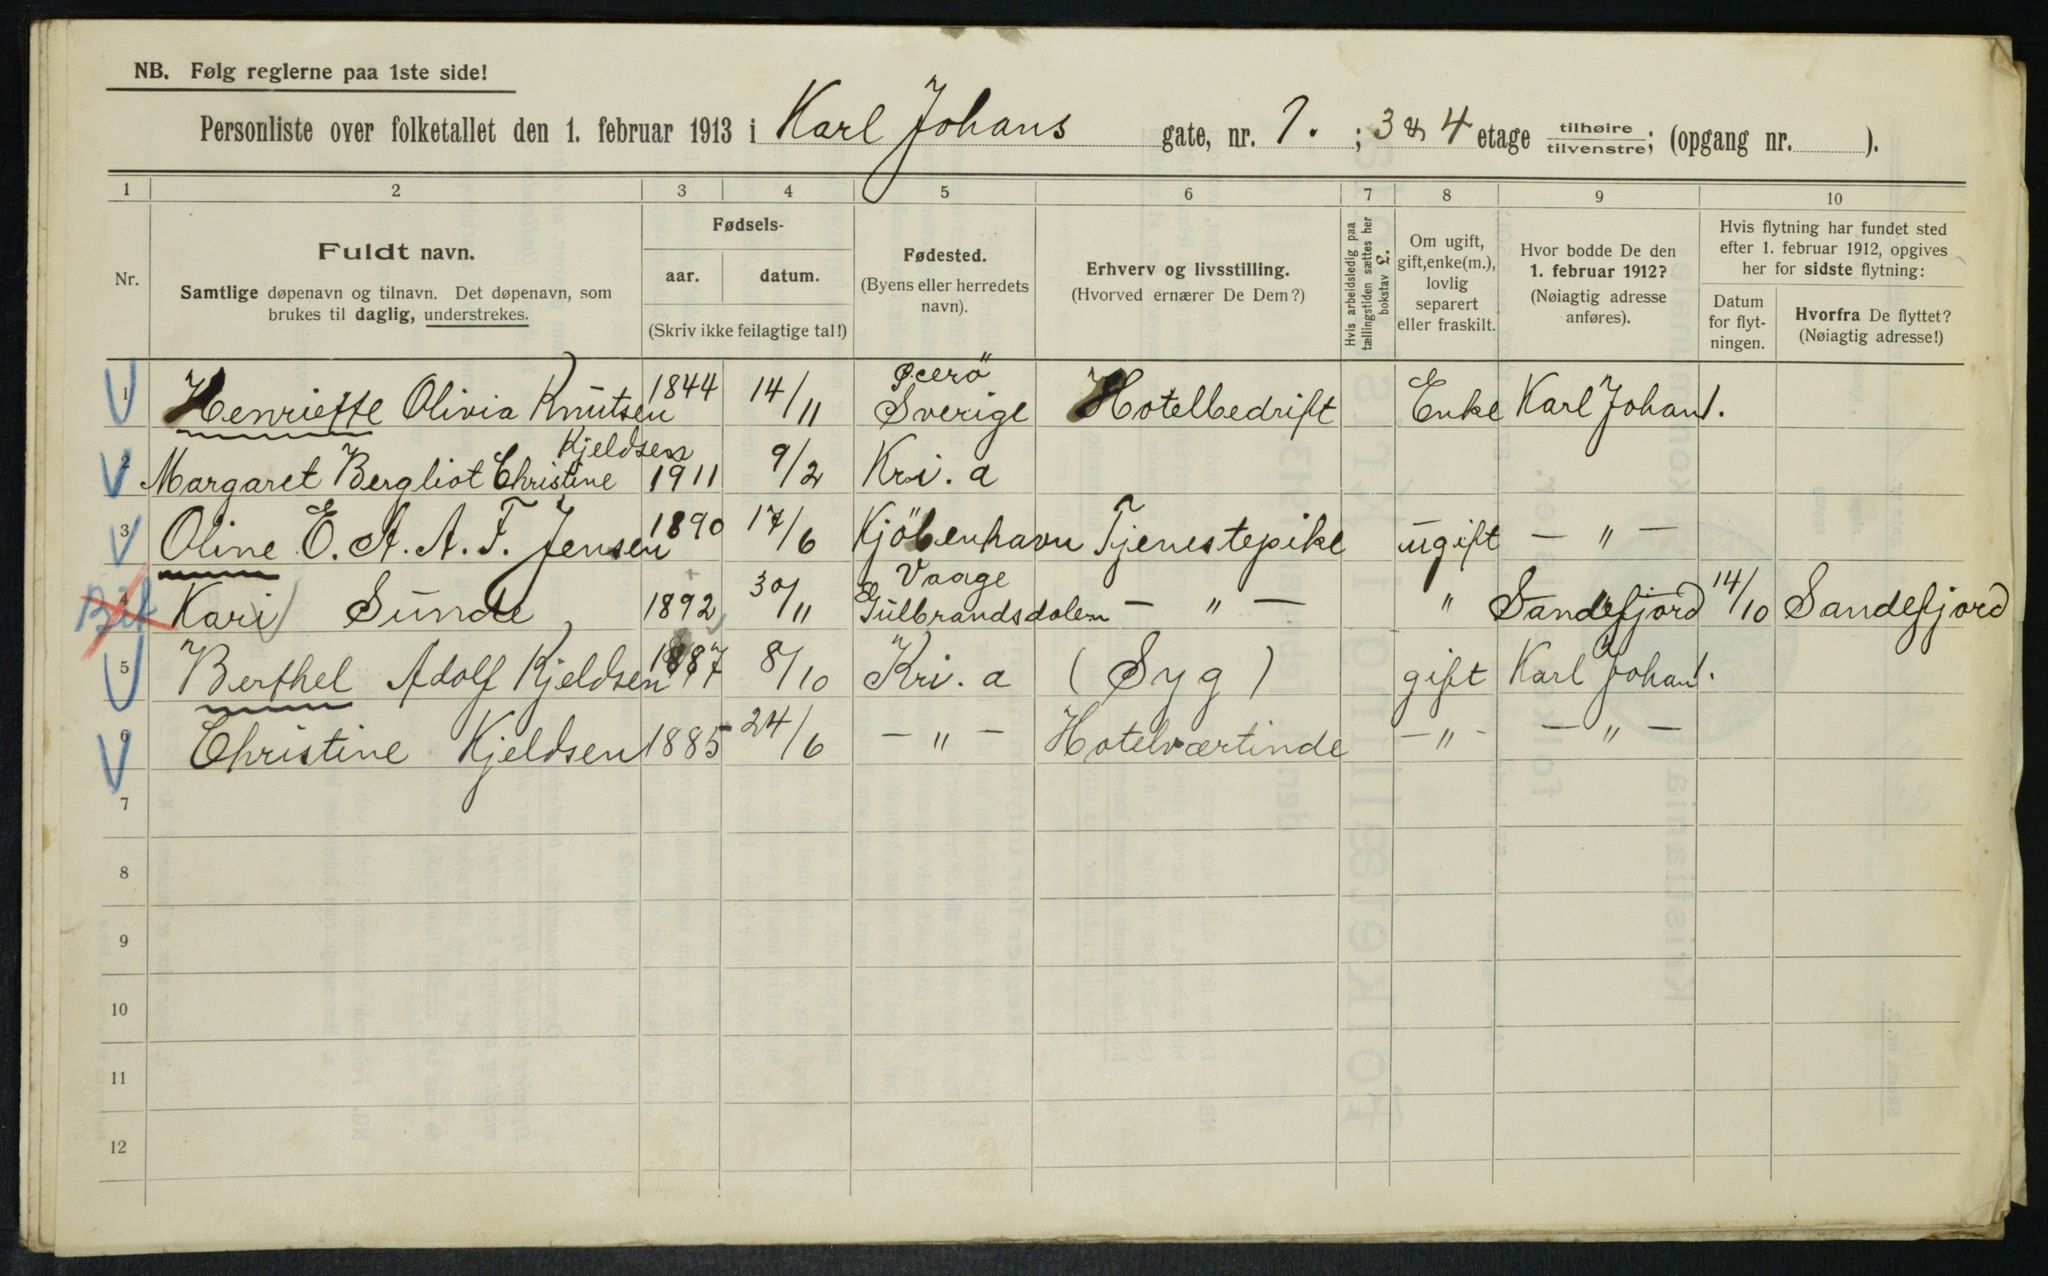 NB. Følg reglerne paa 1ste side!
Personliste over folketallet den 1. februar 1913 i Karl Johans gate, nr. 1. ; 3 & 4 etage tilhøire tilvenstre; (opgang nr. ).
1 2 3 4 5 6 7 8 9 10
Nr.
Fuldt navn.
Samtlige døpenavn og tilnavn. Det døpenavn, som
brukes til daglig, understrekes.
Fødsels-
aar. datum.
(Skriv ikke feilagtige tal!)
Fødested.
(Byens eller herredets
navn).
Erhverv og livsstilling.
(Hvorved ernærer De Dem?)
Hvis arbeidsledig paa
tællingstiden sættes her
bokstav L.
Om ugift,
gift, enke(m.),
lovlig
separert
eller fraskilt.
Hvor bodde De den
1. februar 1912?
(Nøiagtig adresse
anføres).
Hvis flytning har fundet sted
efter 1. februar 1912, opgives
her for sidste flytning:
Datum
for flyt-
ningen.
Hvorfra De flyttet?
(Nøiagtig adresse!)
1 Henriette Olivia Knutsen 1844 14/11 Sverige Hotelbedrift Enke Karl Johan 1.
Kjeldsen
2 Margaret Bergliot Christine 1911 9/2 Kri. a
3 Oline E. A. A. F. Jensen 1890 17/6 Kjöbenhavn Tjenestepike ugift — " —
Vaage
4 Kari Sunde 1892 30/11 Gulbrandsdalen — " — " Sandefjord 14/10 Sandefjord
5 Berthel Adolf Kjeldsen 1887 8/10 Kri. a (Syg) gift Karl Johan 1.
6 Christine Kjeldsen 1885 24/6 — " — Hotelværtinde — " — — " —
7
8
9
10
11
12